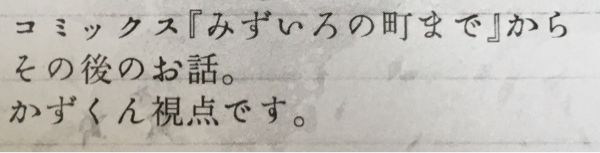 コミックス『みずいろの町まで』から
その後のお話。
かずくん視点です。